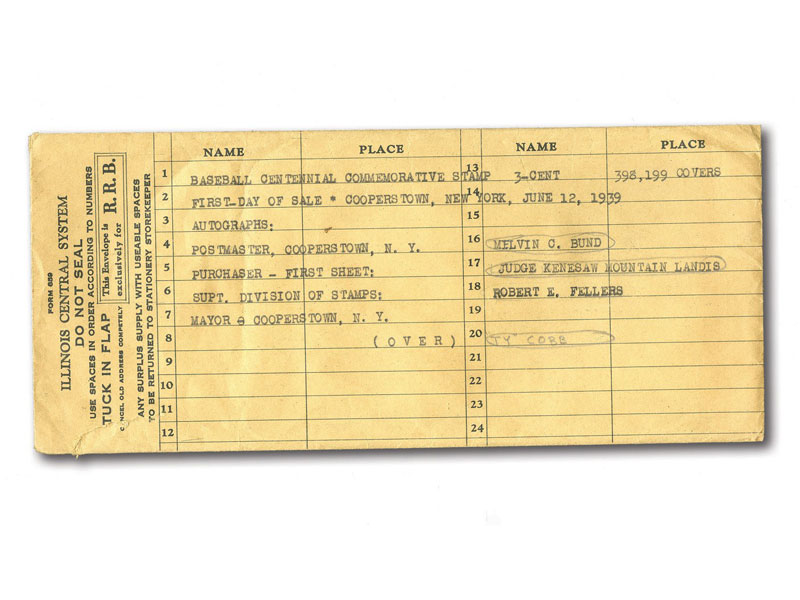 FORM 659
ILLINOIS CENTRAL SYSTEM
DO NOT SEAL
USE SPACES IN ORDER ACCORDING TO NUMBERS
TUCK IN FLAP
This Envelope is exclusively for
R. R. B.
CANCEL OLD ADDRESS COMPLETELY
ANY SURPLUS SUPPLY WITH USEABLE SPACES
TO BE RETURNED TO STATIONERY STOREKEEPER
NAME PLACE NAME PLACE
1 BASEBALL CENTENNIAL COMMEMORATIVE STAMP 13 3-CENT 398,199 COVERS
2 FIRST-DAY OF SALE * COOPERSTOWN, NEW YORK, JUNE 12, 1939 14
3 AUTOGRAPHS: 15
4 POSTMASTER, COOPERSTOWN, N. Y. 16 MELVIN C. BUND
5 PURCHASER - FIRST SHEET: 17 JUDGE KENESAW MOUNTAIN LANDIS
6 SUPT. DIVISION OF STAMPS: 18 ROBERT E. FELLERS
7 MAYOR COOPERSTOWN, N. Y. 19
8 (OVER) 20 TY COBB
9 21
10 22
11 23
12 24